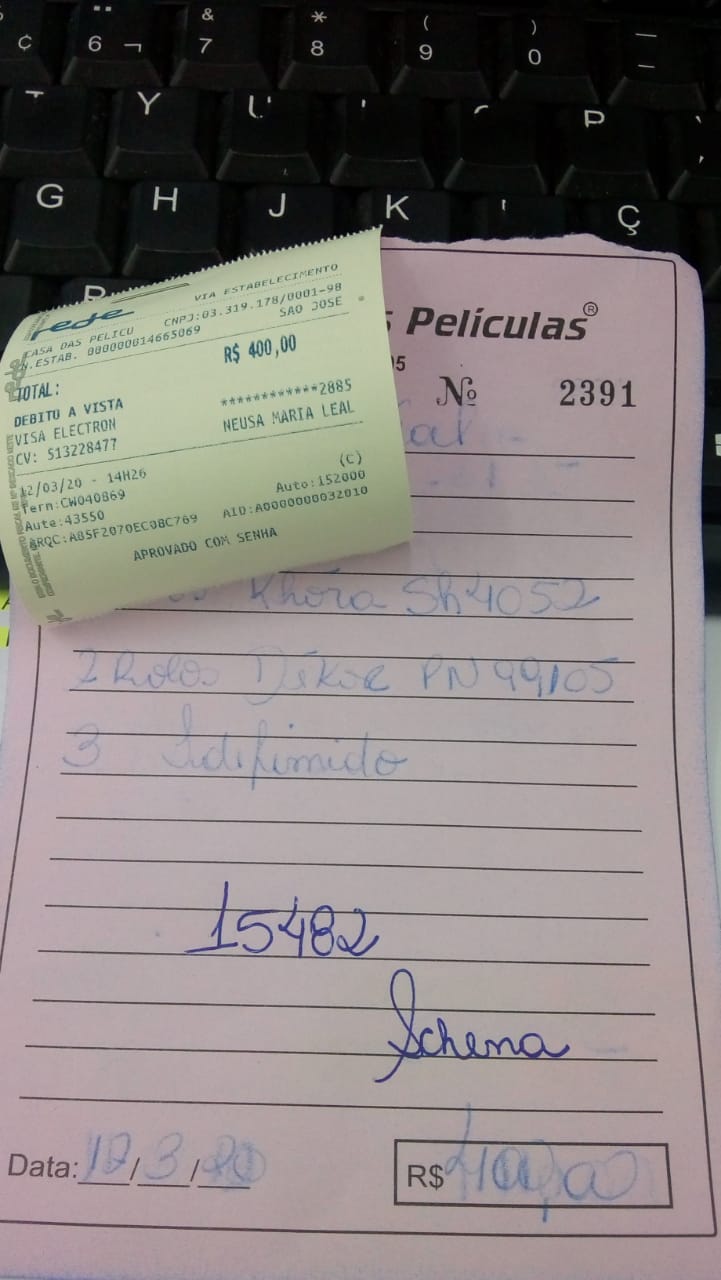 6 ¬ & 7 * 8 ( 9 ) 0
Y U P
G H J K Ç
rede
VIA ESTABELECIMENTO
CASA DAS PELICU CNPJ:03.319.178/0001-98
N.ESTAB. 000000014665069 SAO JOSE
TOTAL: R$ 400,00
DEBITO A VISTA
VISA ELECTRON ************2885
CV: 513228477 NEUSA MARIA LEAL
12/03/20 - 14H26 (C)
Term:CW040869 Auto:152000
Aute:43550 AID:A0000000032010
ARQC:A85F2070EC08C769
APROVADO COM SENHA
s Películas®
05
Nº 2391
Khora Sh4052
2 Rolos Dékor PN 99105
3 Idifimido
15482
Schena
Data: 12/3/20 R$ 400,00